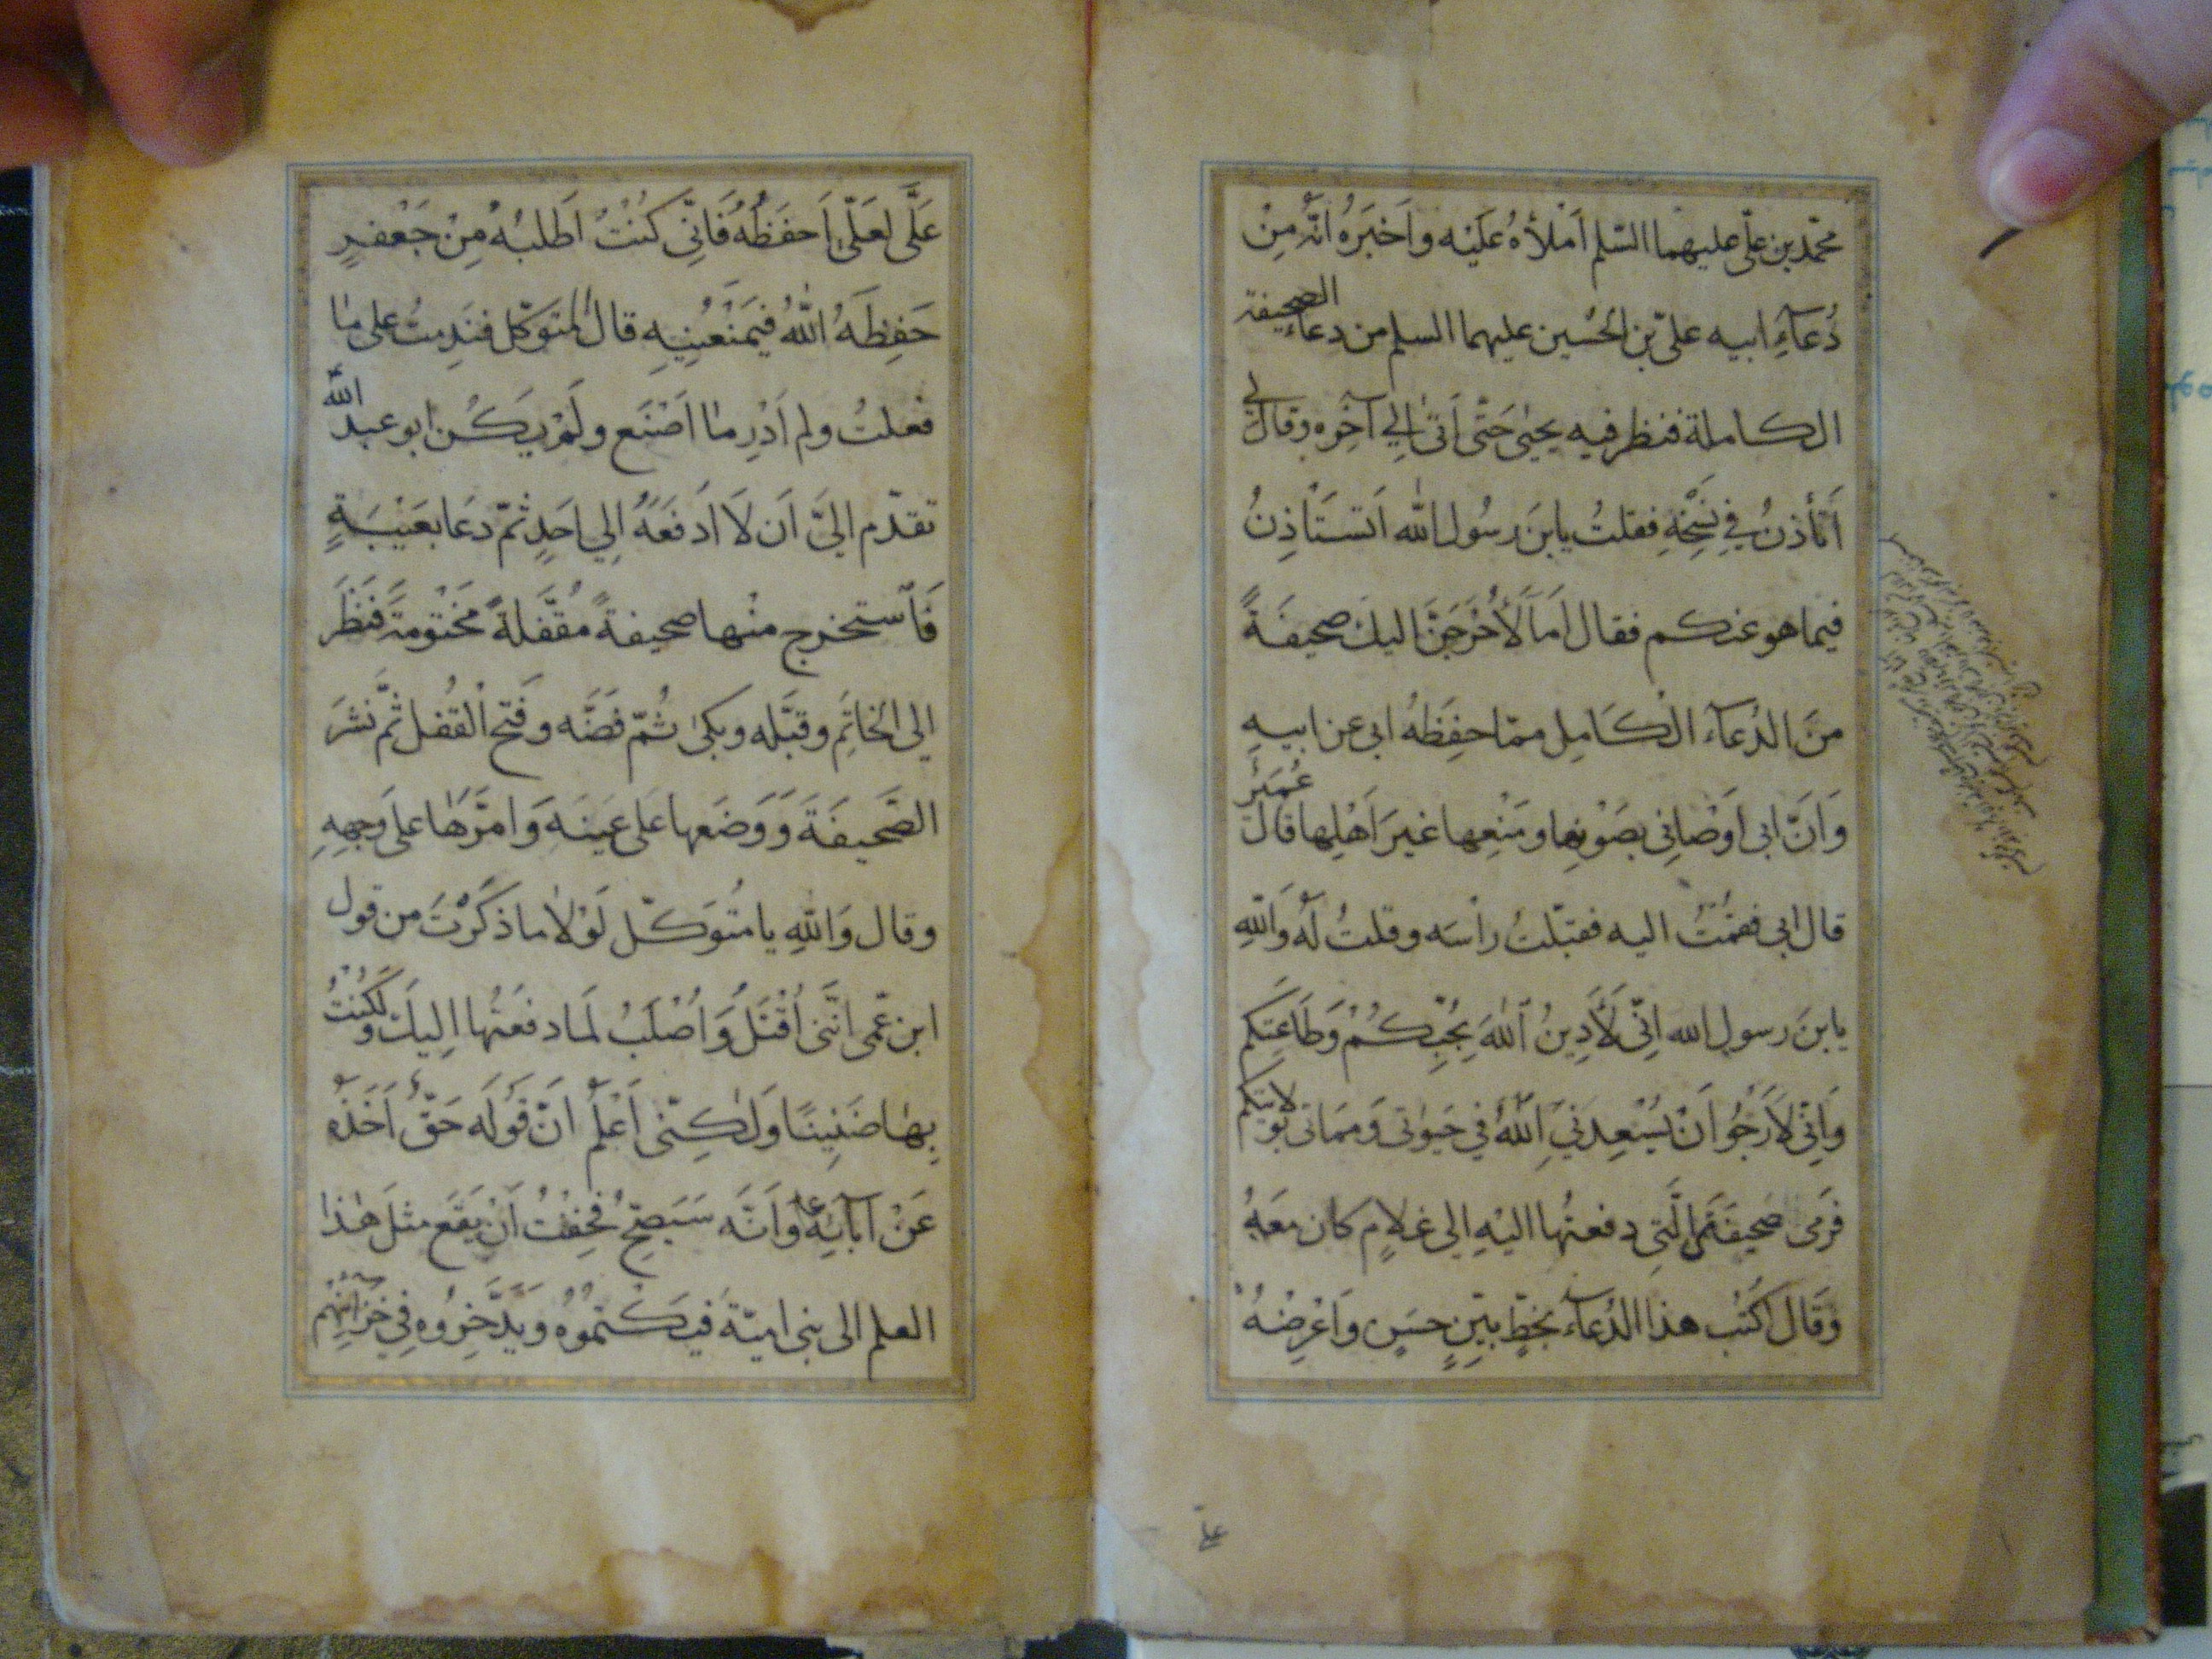 محمّد بن علّي عليهما السّلم اَمْلأهُ عَلَيْه واَخبَرَهُ انّه مِنْ
دُعآءِ ابيه علیّ بن الحُسين عليهما السلم من دعآء الصحيفة
الكاملة فنظر فيه يحيیٰ حَتّى اَتیٰ اِلي آخِره وقال لي
اَتأذنُ في نَسْخِهِ فقلتُ يابنَ رسُول الله اَتستَاذِنُ
فيما هو عندكم فقال اَمَا لَأُخْرِجَنَّ اليكَ صحيفَةً
منَ الدُعآء الْكَامِلِ ممّا حفِظَهُ ابى عن ابيهِ
وَاَنَّ ابى اَوْصَانِى بصَوْنِها ومَنْعِها غيرَ اَهْلِها قالَ عُمَيْر
قال ابى فقمْتُ اليه فقبّلتُ راْسَه وقلتُ لَه وَاللّهِ
يابنَ رسولِ الله اِنّى لَأَدِينُ اللّهَ بِحُبِّكُمْ وَطَاعَتِكم
وَاِنّى لَأَرجُو اَنْ يُسْعِدَنِيَ اللّهُ فِي حَيٰوتى وَمَمَاتى بوَلَايتكم
فَرمى صَحِيفَتَي الّتى دفعتُها اليْهِ الى غلامٍ كان معَهُ
وَقَال اكْتُب هذا الدُعآء بخطٍّ بيّنٍ حسَنٍ وَاَعْرِضْهُ
علي
عَلَّى لعَلّى اَحفَظُهُ فَانِّى كُنْتُ اَطلبُهُ مِنْ جَعْفرٍ
حَفِظَهُ اللّهُ فيَمنَعُنِيهِ قالَ المتوَكّل فندِمتُ على مٰا
فعلتُ ولم اَدْرِ مٰا اَصْنَع ولَمْ يَكُن ابو عبد اللّه
تقدّم الىَّ اَن لَا اَدفعَهُ اِلي احَدٍ ثمّ دعَا بعَيْبَةٍ
فَاستخرج منْها صحيفةً مُقَّفَلةً مَخْتومةً فنَظَرَ
الى الخاتِمَ وقبَّله وبكىٰ ثُمّ فضَّه وفَتح الْقُفل ثمّ نشرَ
الصَّحيفَةَ وَوَضَعها عَلى عَينَه وَامَرَّهَا على وَجههِ
وقال وَاللّهِ يا متُوَكّل لَوْلٰا ما ذكَرْتَ من قول
ابن عمّى انّنى اُقْتَلُ وَاُصْلَبُ لَمَا دفعَتُها اِليكَ ولَكُنتُ
بِهٰا ضَنِينًا وَلٰكِنّى اَعْلَمُ انّ قَولَه حَقّ اَخَذَه
عَنْ آبآئِه ع وَاَنّه سَيَصِحّ فَخِفْتُ اَنْ يَقَع مثلَ هٰذا
العلم الى بنى اميّة فيَكتمُوُه وَيَدَّخِرُوه فِي خَزائِنِهم